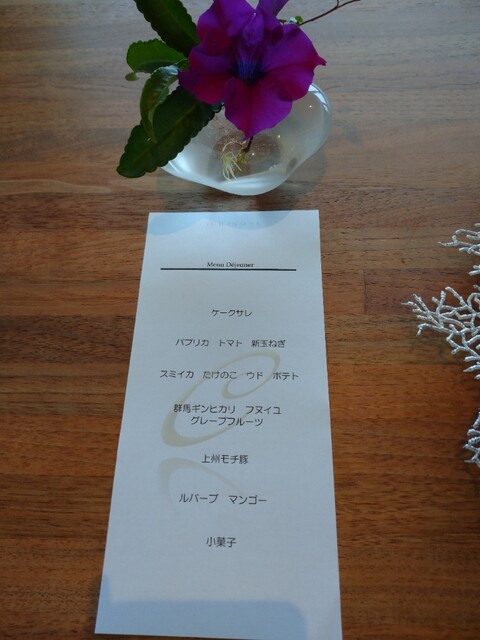 Menu Déjeuner
ケークサレ
パプリカ トマト 新玉ねぎ
スミイカ たけのこ ウド ポテト
群馬ギンヒカリ フヌイユ
グレープフルーツ
上州モチ豚
ルバーブ マンゴー
小菓子